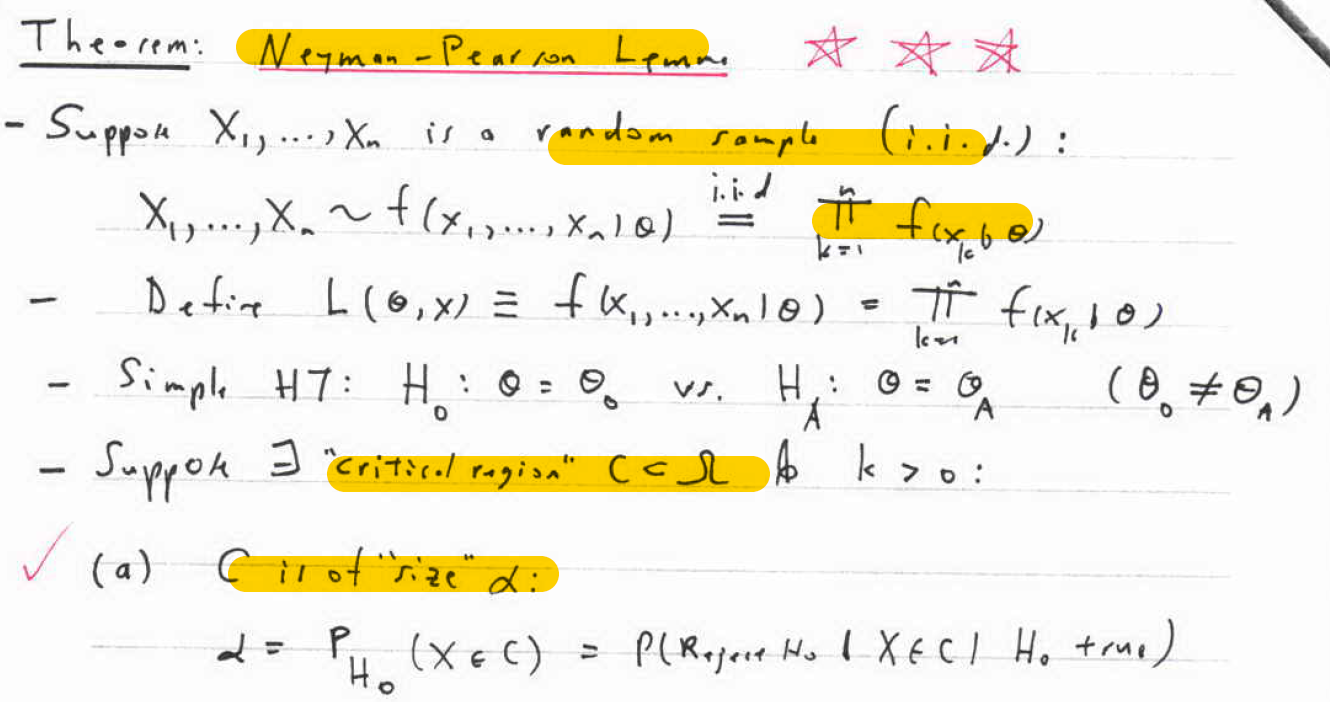 Theorem: Neyman-Pearson Lemma
- Suppose X₁,...,Xₙ is a random sample (i.i.d.):
X₁,...,Xₙ ~ f(x₁,...,xₙ|θ) i.i.d = ∏ₖ₌₁ⁿ f(xₖ|θ)
- Define L(θ,x) ≡ f(x₁,...,xₙ|θ) = ∏ₖ₌₁ⁿ f(xₖ|θ)
- Simple HT: H₀: θ = θ₀ vs. H_A: θ = θ_A (θ₀ ≠ θ_A)
- Suppose ∃ "critical region" C ⊂ Ω & k > 0:
✓ (a) C is of "size" α:
α = P_H₀ (X ∈ C) = P(Reject H₀ | X ∈ C | H₀ true)